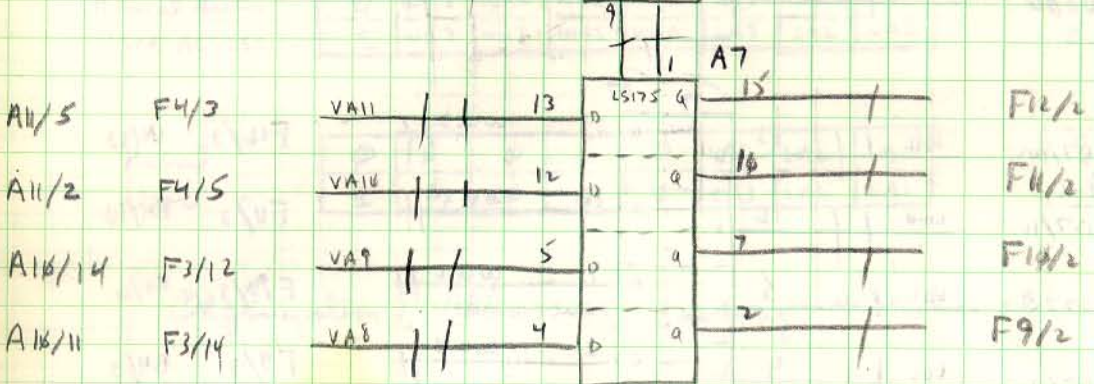 9 1 A7
A11/5 F4/3 VA11 13 D LS175 Q 15 F12/2
A11/2 F4/5 VA10 12 D Q 10 F11/2
A10/14 F3/12 VA9 5 D Q 7 F10/2
A10/11 F3/14 VA8 4 D Q 2 F9/2